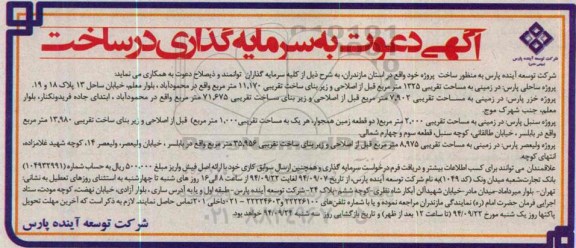 آگهی دعوت به سرمایه گذاری در ساخت
شرکت توسعه آینده پارس
شرکت توسعه آینده پارس به منظور ساخت پروژه خود واقع در استان مازندران، به شرح ذیل از کلیه سرمایه گذاران توانمند و ذیصلاح دعوت به همکاری می نماید:
پروژه ساحلی پارس: در زمینی به مساحت تقریبی ۱۳۲۵ متر مربع قبل از اصلاحی و زیر بنای ساخت تقریبی ۱۱,۱۷۰ متر مربع واقع در محمودآباد، بلوار معلم، خیابان ساحل ۱۳ پلاک ۱۸ و ۱۹.
پروژه خزر پارس: در زمینی به مساحت تقریبی ۷,۹۰۲ متر مربع قبل از اصلاحی و زیر بنای ساخت تقریبی ۷۱,۶۷۵ متر مربع واقع در محمودآباد، ابتدای جاده فریدونکنار، بلوار
معلم، جنب شهرک موج.
پروژه سنبل پارس: در زمینی به مساحت تقریبی ۲,۰۰۰ متر مربع( دو قطعه زمین همجوار، هر یک به مساحت تقریبی ۱,۰۰۰ متر مربع) قبل از اصلاحی و زیر بنای ساخت تقریبی ۱۳,۹۸۰ متر مربع
واقع در بابلسر، خیابان طالقانی، کوچه سنبل، قطعه سوم و چهارم شمالی.
پروژه ولیعصر پارس: در زمینی به مساحت تقریبی ۸,۹۷۵ متر مربع قبل از اصلاحی و زیربنای ساخت تقریبی ۳۵,۹۵۶ متر مربع واقع در بابلسر ، خیابان ولیعصر، ولیعصر ۱۴، کوچه شهید غلامزاده،
انتهای کوچه.
علاقمندان می توانند برای کسب اطلاعات بیشتر و دریافت فرم درخواست سرمایه گذاری و همچنین ارسال سوابق کاری خود با ارائه اصل فیش واریز مبلغ ۵۰۰,۰۰۰ ریال به حساب شماره (۱۰۴۹۳۲۹۹۱)
بانک تجارت شعبه میدان ونک (کد ۰۴۹) به نام شرکت توسعه آینده پارس، از تاریخ ۹۴/۰۹/۰۷ لغایت ۹۴/۰۹/۲۲ از ساعت ۸ الی ۱۶ روز های شنبه تا چهارشنبه به استثنای روزهای تعطیل به نشانی:
تهران- بلوار میرداماد- میدان مادر- خیابان شهیدان آبکار شاه نظری- کوچه ششم- پلاک ۲۴- شرکت توسعه آینده پارس- طبقه اول و یا به آدرس ساری، بلوار آزادی، خیابان نهضت، کوچه مودت، ستاد
اجرایی فرمان حضرت امام (ره) نمایندگی مازندران مراجعه نموده و یا با شماره تلفن های ۲۲۲۲۶۱۰۰ – ۲۲۲۲۴۶۰۳ -۰۲۱ داخلی ۲۰۱ تماس حاصل نمایند. لازم به ذکر است که آخرین مهلت تحویل
پاکتها روز یک شنبه مورخ ۹۴/۰۹/۲۲ (تا ساعت ۱۲ بعد از ظهر) و تاریخ بازگشایی روز سه شنبه ۹۴/۰۹/۲۴ خواهد بود.
شرکت توسعه آینده پارس